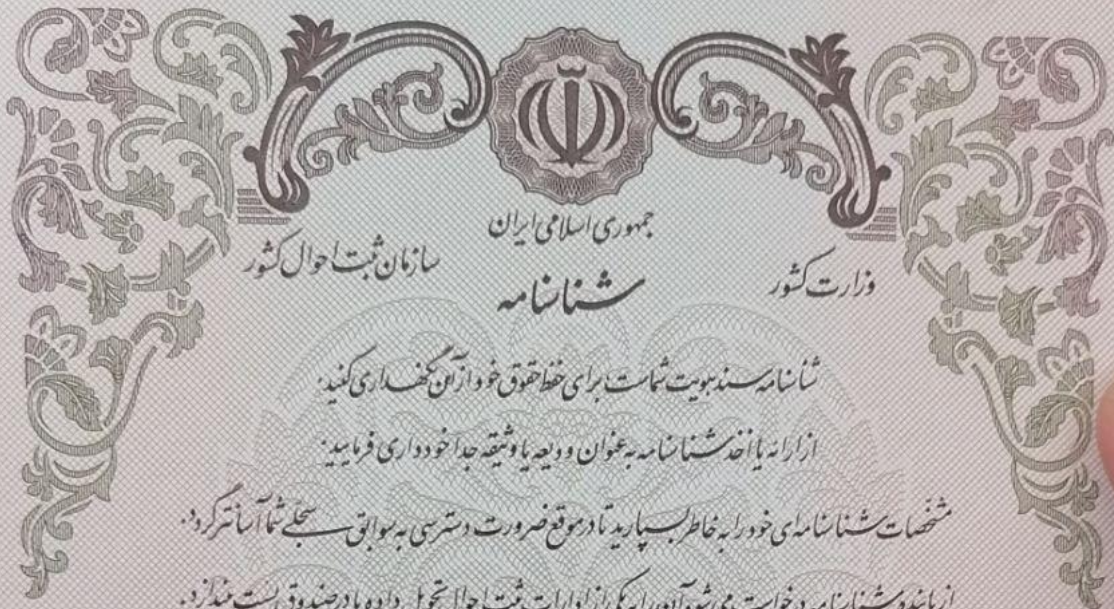 جمهوری اسلامی ایران
وزارت کشور
سازمان ثبت احوال کشور
شناسنامه
شناسنامه سند هویت شماست برای حفظ حقوق خود از آن نگهداری کنید.
از ارائه یا اخذ شناسنامه به عنوان ودیعه یا وثیقه جدا خودداری فرمایید.
مشخصات شناسنامه‌ای خود را به خاطر بسپارید تا در موقع ضرورت دسترسی به سوابق سجلی شما آسانتر گردد.
از یابنده شناسنامه درخواست می‌شود آن را به یکی از ادارات ثبت احوال تحویل داده یا در صندوق پست بیندازد.